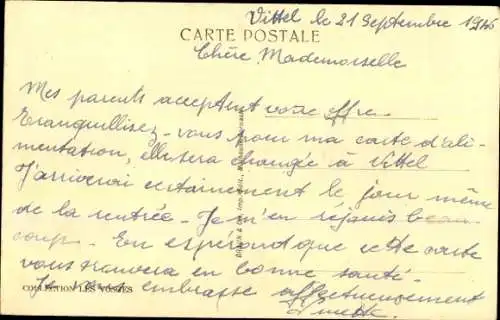 Vittel le 21 Septembre 1946
CARTE POSTALE
Chère Mademoiselle
Mes parents acceptent votre offre.
Tranquillisez-vous pour ma carte d'ali-
mentation, elle sera changée à Vittel
J'arriverai certainement le jour même
de la rentrée. Je m'en réjouis beau-
coup. En espérant que cette carte
vous trouvera en bonne santé.
COLLECTION LES VOSGES
Je vous embrasse affectueusement